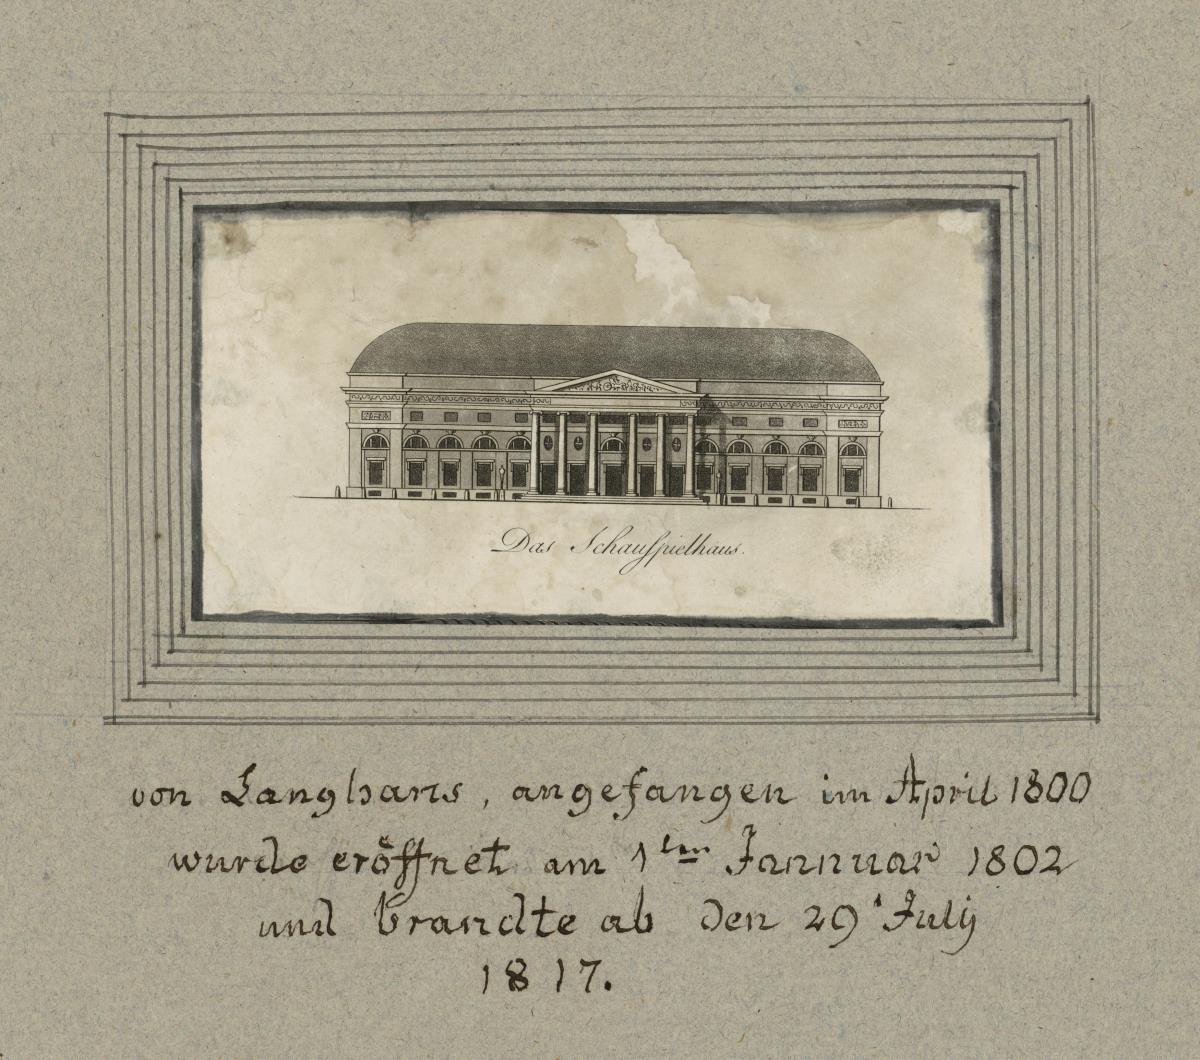 Das Schauſpielhaus.
von Langhans, angefangen im April 1800
wurde eröffnet am 1ten Jannuar 1802
und brandte ab den 29 July
1817.